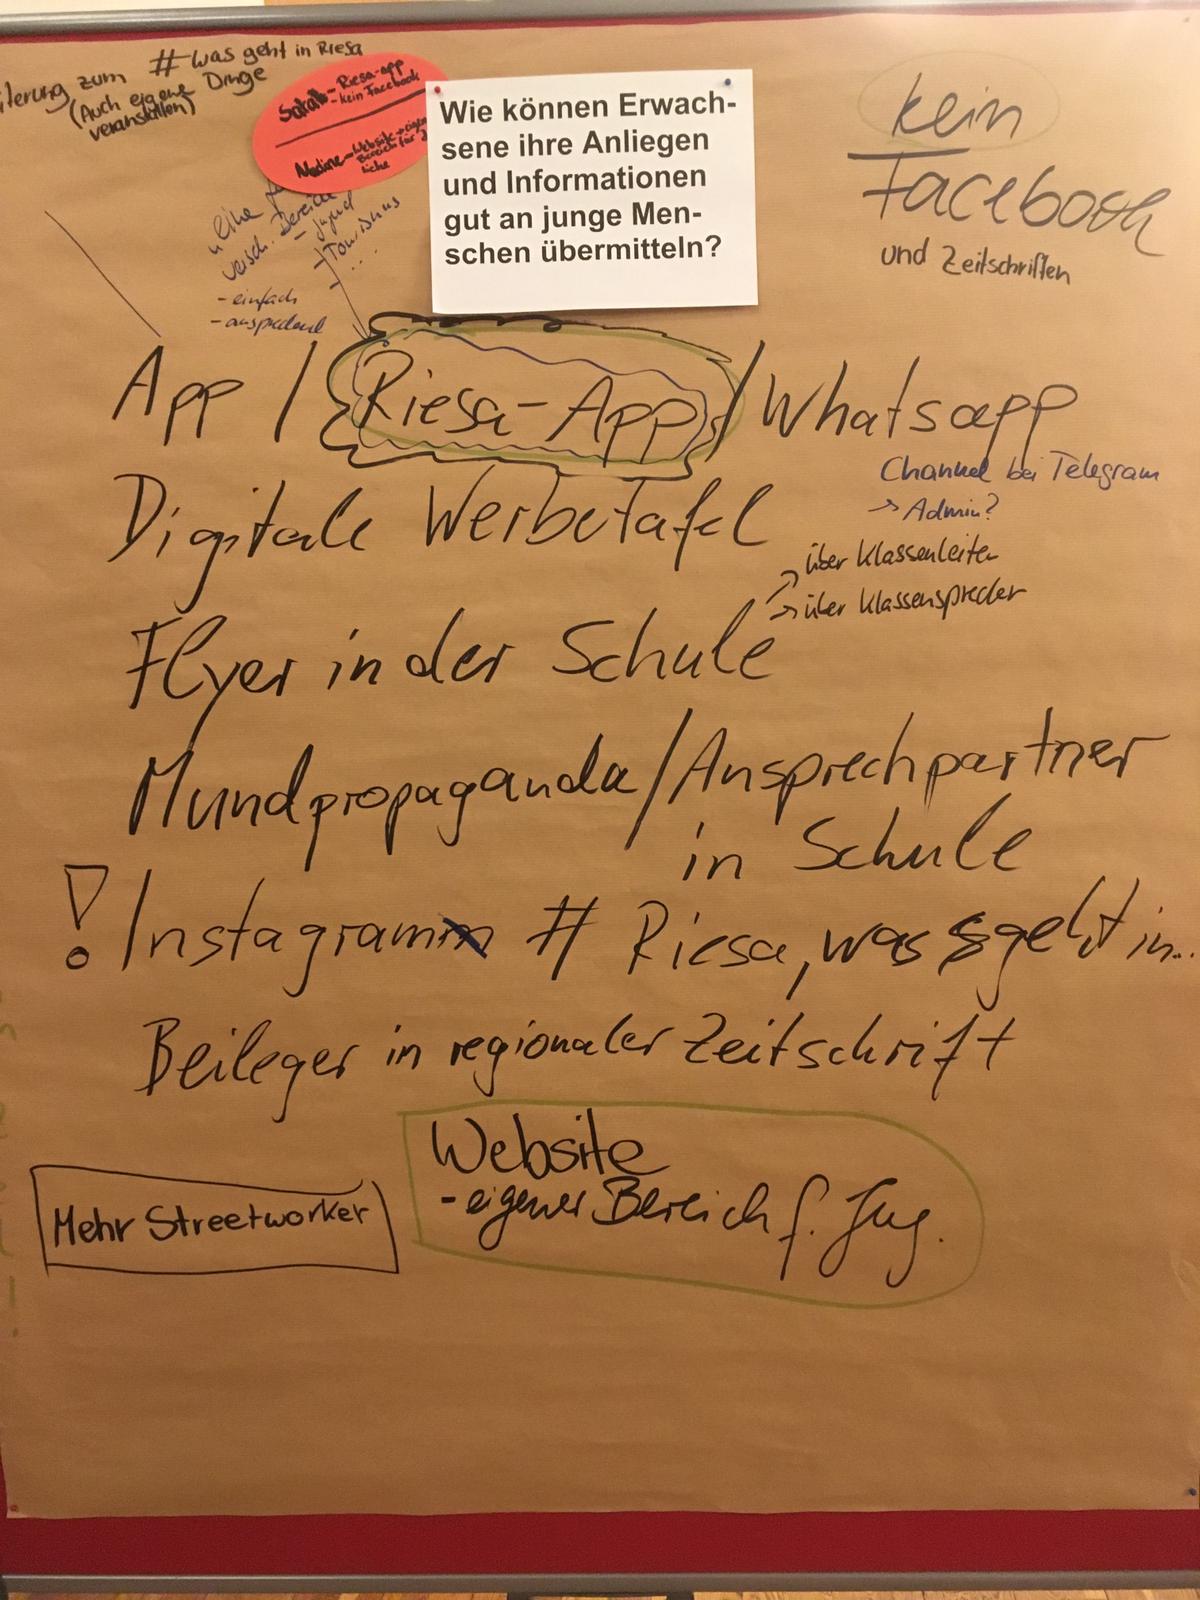 # was geht in Riesa
zum
(Auch eigene Dinge
veranstalten)
- Riesa-app
- kein Facebook
Nadine - Website → eigen
Bereich für J
liche
Wie können Erwach-
sene ihre Anliegen
und Informationen
gut an junge Men-
schen übermitteln?
kein
Facebook
und Zeitschriften
eine
versch. Bereiche
- Jugend
- Tourismus
...
- einfach
- ansprechend
App / Riesa-App / Whatsapp
Channel bei Telegram
→ Admin?
Digitale Werbetafel
→ über Klassenleiter
→ über Klassensprecher
Flyer in der Schule
Mundpropaganda / Ansprechpartner
in Schule
! Instagram # Riesa, was geht in...
Beileger in regionaler Zeitschrift
Website
- eigener Bereich f. Jug.
Mehr Streetworker